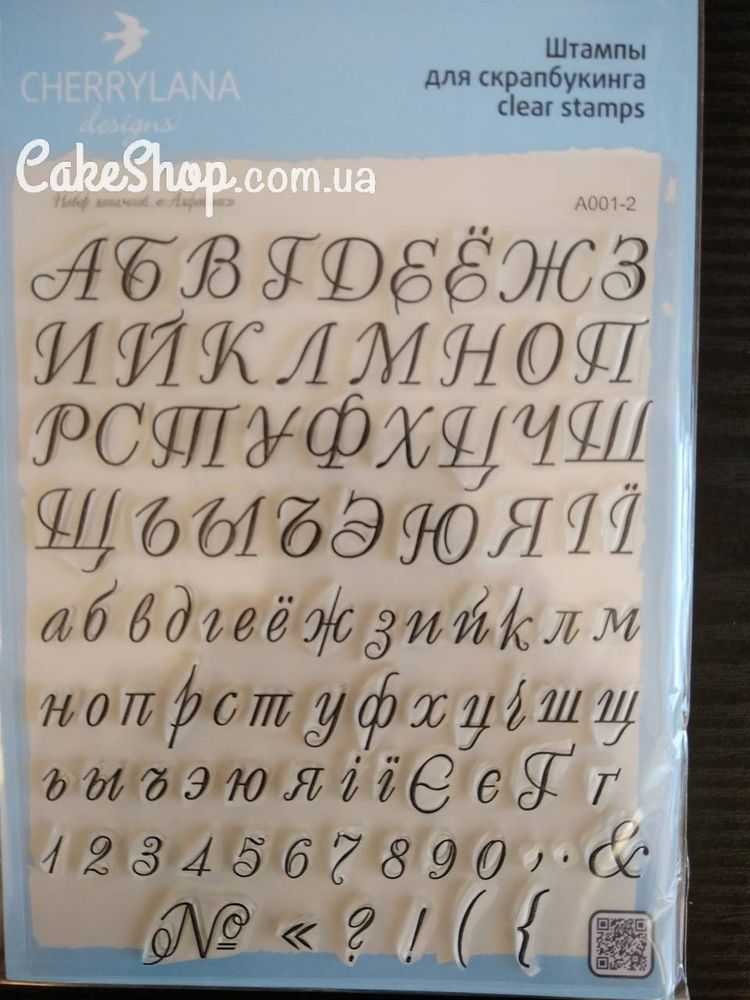 CHERRYLANA
designs
Штампы
для скрапбукинга
clear stamps
CakeShop.com.ua
Набор штампов «Алфавит»
A001-2
А Б В Г Д Е Ё Ж З
И Й К Л М Н О П
Р С Т У Ф Х Ц Ч Ш
Щ Ь Ы Ъ Э Ю Я І Ї
а б в д г е ё ж з и й к л м
н о п р с т у ф х ц ч ш щ
ь ы ъ э ю я і ї Є є Ґ ґ
1 2 3 4 5 6 7 8 9 0 , . &
№ « ? ! ( {